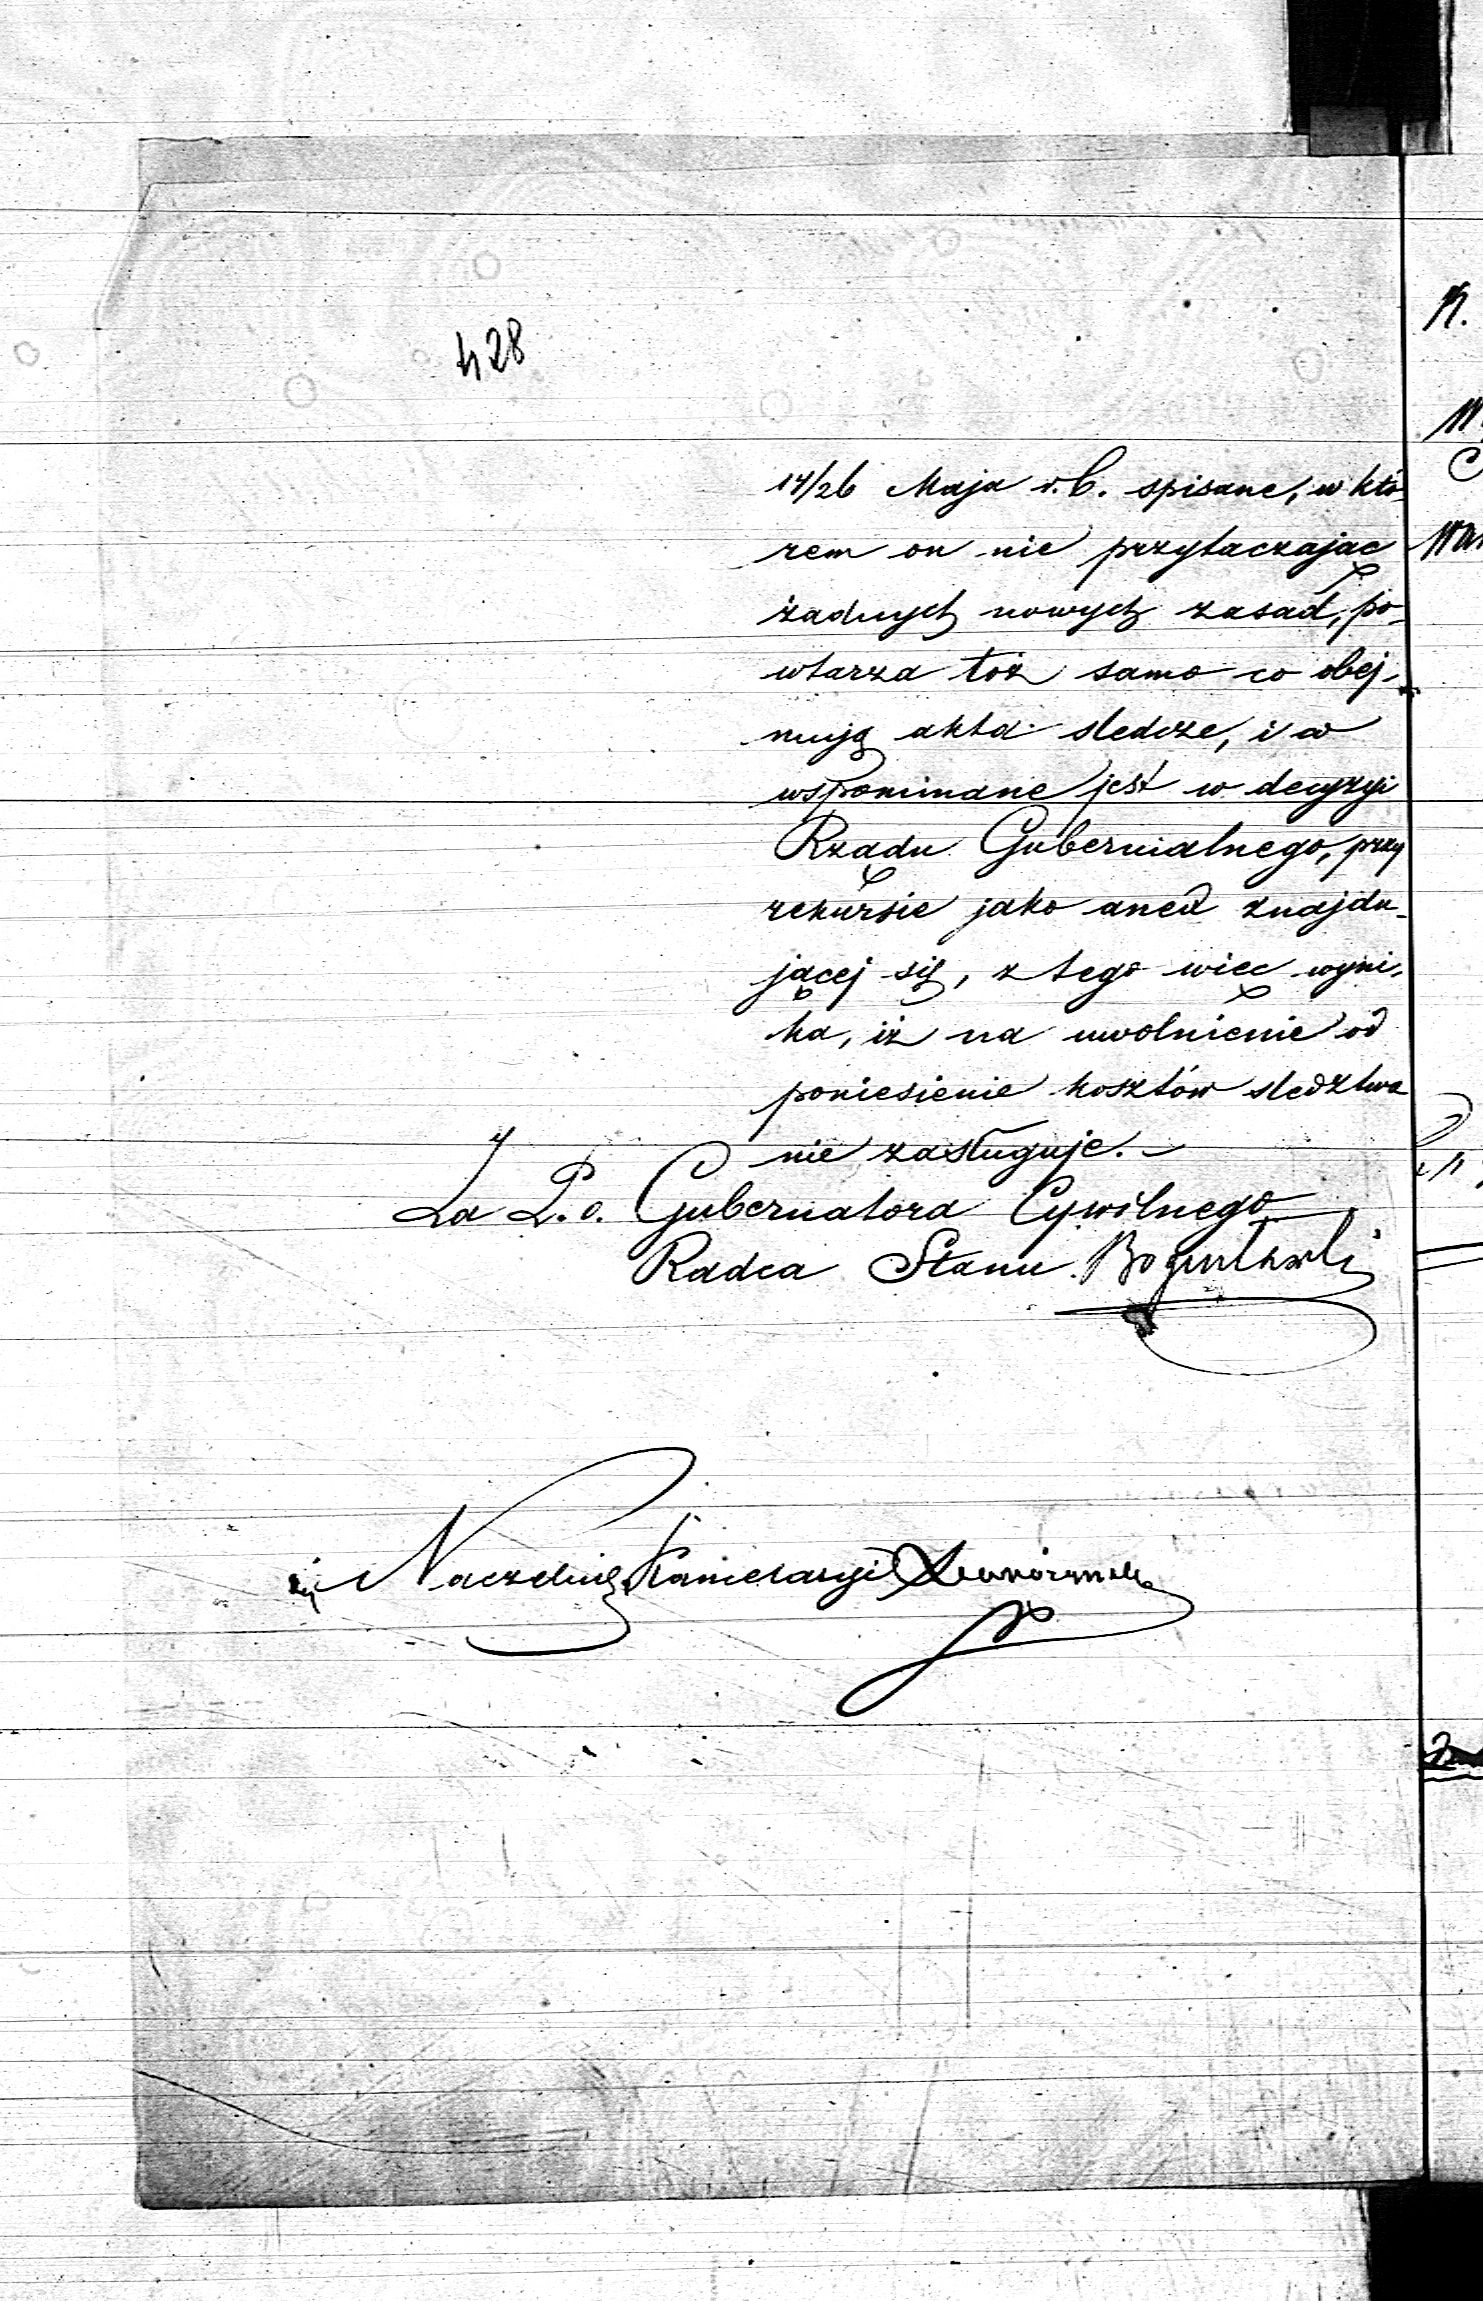 428
14/26 Maja r.b. spisane, w któ-
rem on nie przytaczając
żadnych nowych zasad, po-
wtarza toż samo co obej-
mują akta śledcze, i co
wspominane jest w decyzyi
Rządu Gubernialnego, przy
rekursie jako anex znajdu-
jącej się, z tego więc wyni-
ka, iż na uwolnienie od
poniesienie kosztów śledztwa
nie zasługuje.
Za P.o. Gubernatora Cywilnego
Radca Stanu
Naczelnik Kancelaryi